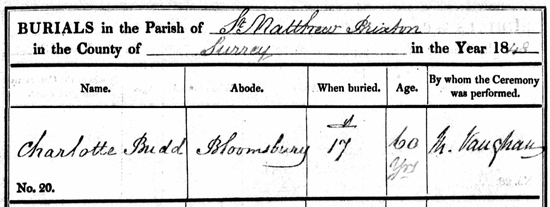 BURIALS in the Parish of St. Matthew Brixton
in the County of Surrey in the Year 1848
Name. Abode. When buried. Age. By whom the Ceremony was performed.
Charlotte Budd Bloomsbury 17 60 Yrs Vaughan
No. 20.